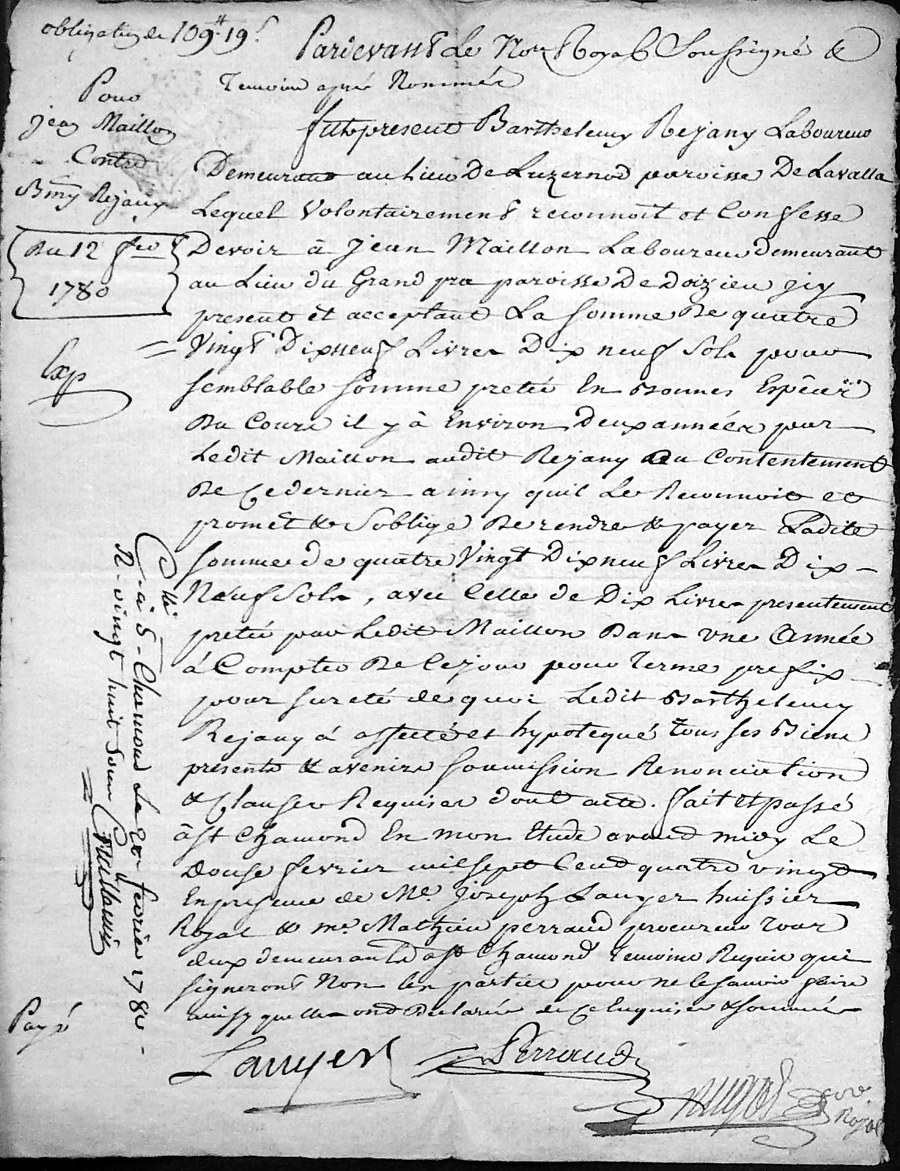 obligation de 109ᵗᵗ 19ˢ
Pour
Jean Maillon
Contre
Bmy Rejany
Du 12 fevr
1780
Exp
Pardevant Le Nore Royal Soussigné &
Temoins aprés Nommés
fut present Barthelemy Rejany Laboureur
Demeurant au Lieu De Luzernod paroisse De Lavalla
Lequel Volontairement reconnoit et Confesse
Devoir à Jean Maillon Laboureur demeurant
au Lieu du Grand pra paroisse De Doizieu icy
present et acceptant La Somme De quatre
Vingt Dixneuf Livres Dix neuf Sols pour
semblable Somme pretée En Bonnes Espéces
Du Cours il y à Environ Deux années par
Ledit Maillon audit Rejany au Contentement
De Ce dernier ainsy quil Le Reconnoit et
promet & Soblige De rendre & payer Ladite
Somme de quatre Vingt Dixneuf Livres Dix
Neuf Sols, avec Celle de Dix Livres presentement
pretée par Ledit Maillon Dans une Année
à Compter De Ce jour pour Terme prefix
pour sureté de quoi Ledit Barthelemy
Rejany à affecté et hypotequé Tous ses Biens
presents & avenirs Soumission Renonciation
& Clauses Requises dont acte. fait et passé
à St Chamond En mon Etude avant midy Le
Douse fevrier mil sept Cent quatre vingt
En presence de Me. Joseph Lauyer huissier
Royal & me. Mathieu perraud procureur tous
deux demeurants a St Chamond Temoins Requis qui
signeront Non les parties pour ne le savoir faire
ainsy quelles ont declarés de Ce Enquises & sommées
Lauyer Perraud
nore
Royal
Clé à S- Chamond Le 20 fevrier 1780-
R- vingt huit sous
Payé